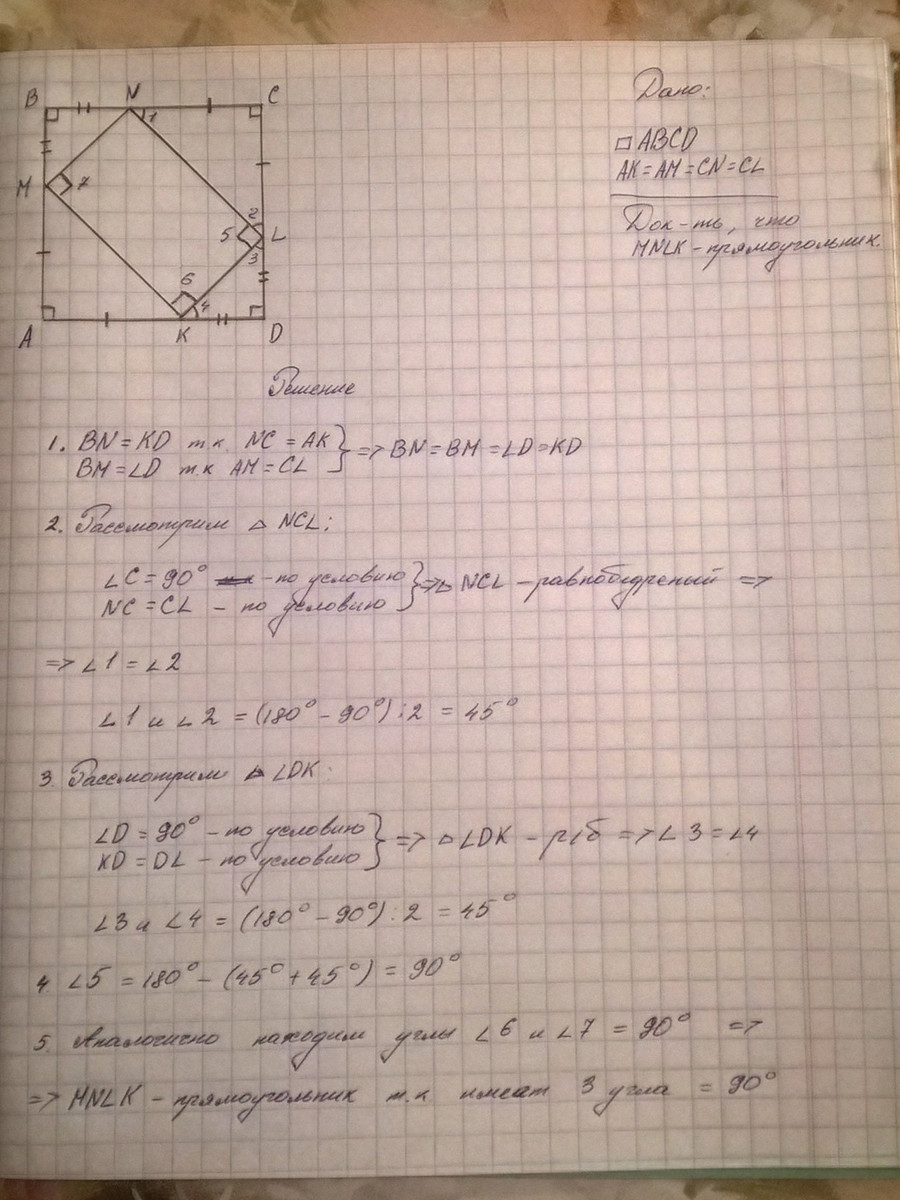 B N C
1
M 7
2
5 L
3
6
4
A K D
Дано:
□ ABCD
AK = AM = CN = CL
Док-ть, что
MNLK - прямоугольник.
Решение
1. BN = KD т.к. NC = AK } => BN = BM = LD = KD
BM = LD т.к AM = CL
2. Рассмотрим △ NCL:
∠C = 90° - по условию } => △ NCL - равнобедренный =>
NC = CL - по условию
=> ∠1 = ∠2
∠1 и ∠2 = (180° - 90°) : 2 = 45°
3. Рассмотрим △ LDK:
∠D = 90° - по условию } => △ LDK - р/б => ∠3 = ∠4
KD = DL - по условию
∠3 и ∠4 = (180° - 90°) : 2 = 45°
4. ∠5 = 180° - (45° + 45°) = 90°
5. Аналогично находим углы ∠6 и ∠7 = 90° =>
=> MNLK - прямоугольник т.к имеет 3 угла = 90°